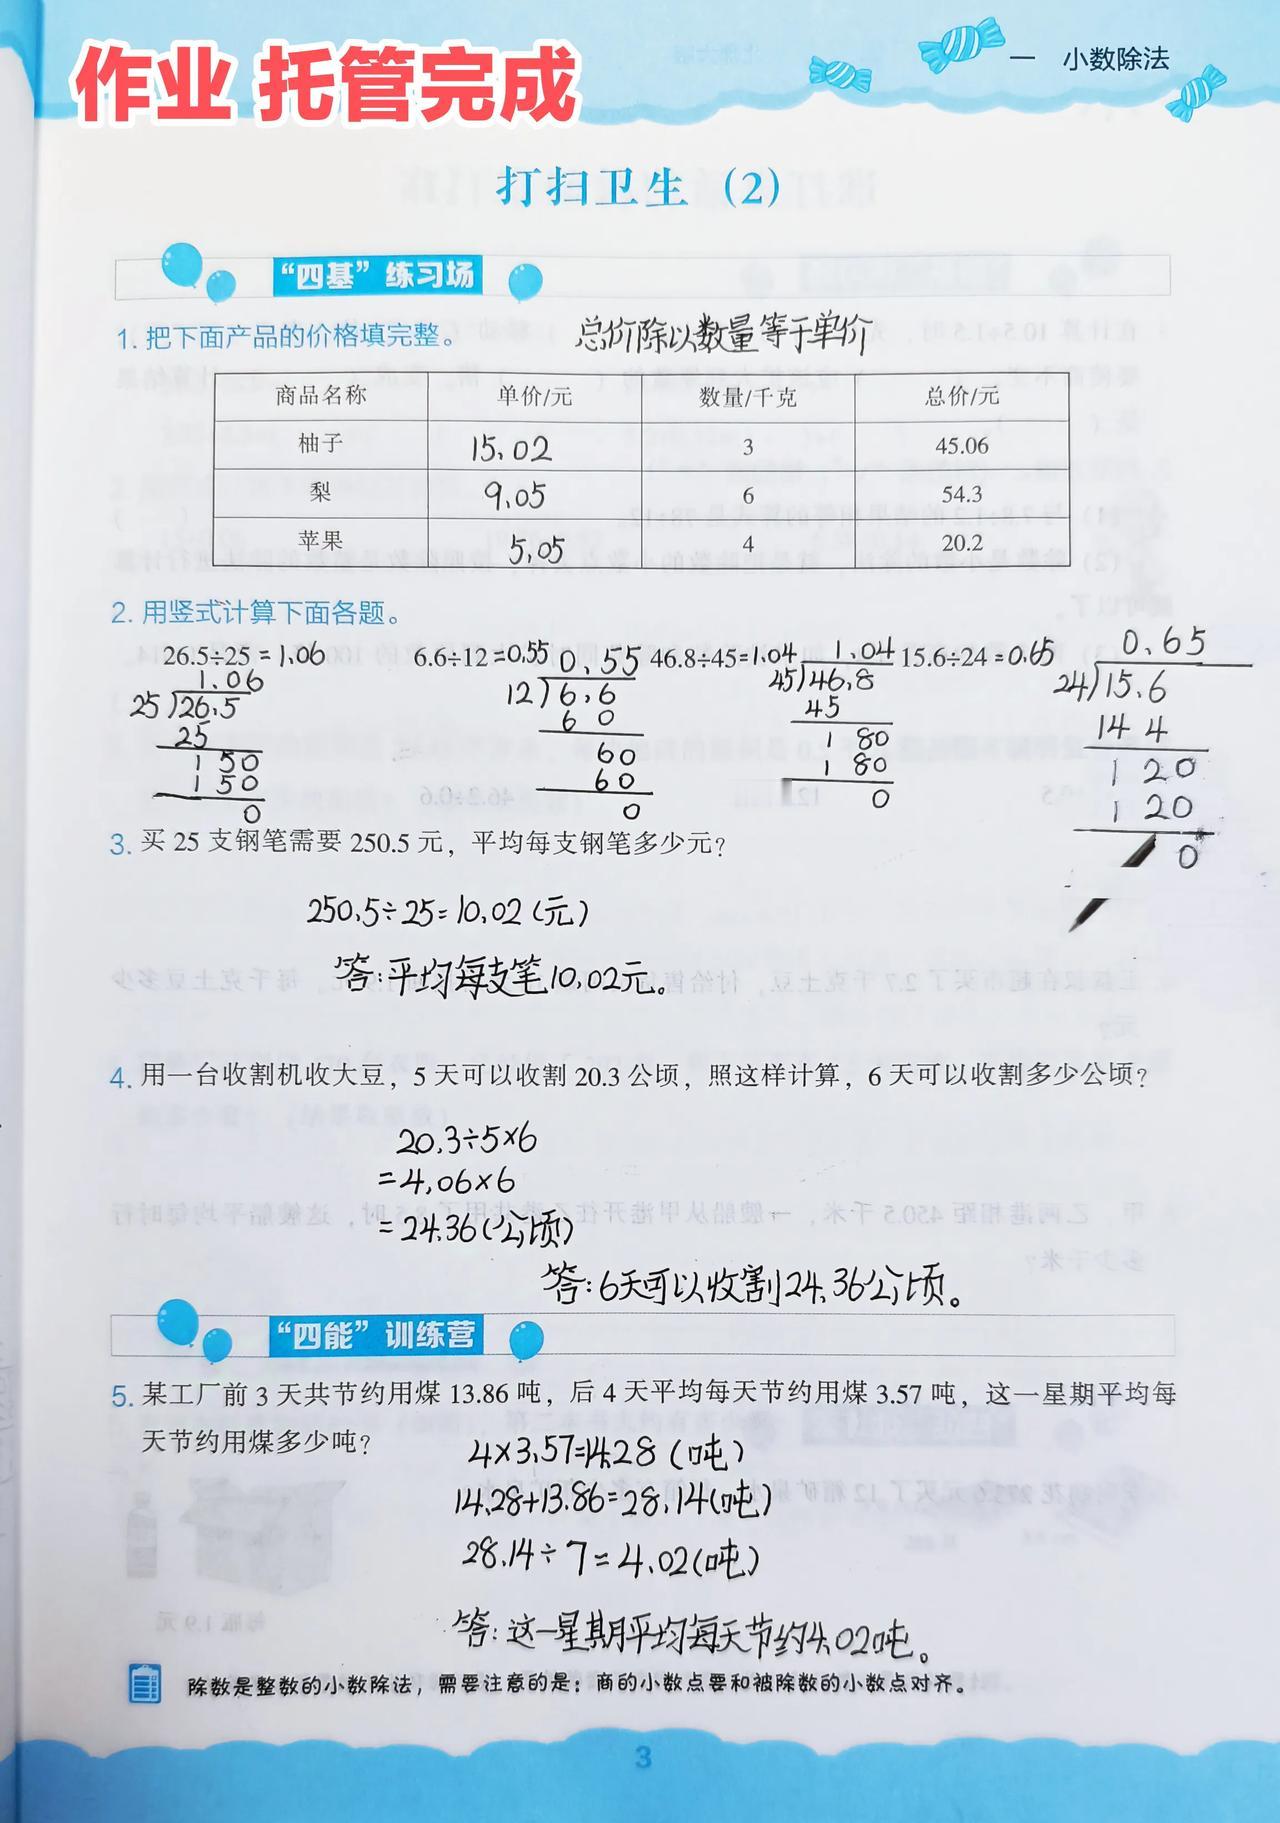 作业 托管完成
一 小数除法
打扫卫生（2）
“四基”练习场
1. 把下面产品的价格填完整。 总价除以数量等于单价
商品名称 单价/元 数量/千克 总价/元
柚子 15.02 3 45.06
梨 9.05 6 54.3
苹果 5.05 4 20.2
2. 用竖式计算下面各题。
26.5÷25=1.06 6.6÷12=0.55 46.8÷45=1.04 15.6÷24=0.65
1.06
25)26.5
25
1 50
1 50
0
0.55
12)6.6
6 0
60
60
0
1.04
45)46.8
45
1 80
1 80
0
0.65
24)15.6
14 4
1 20
1 20
0
3. 买 25 支钢笔需要 250.5 元，平均每支钢笔多少元？
250.5÷25=10.02(元)
答:平均每支笔10.02元。
4. 用一台收割机收大豆，5 天可以收割 20.3 公顷，照这样计算，6 天可以收割多少公顷？
20.3÷5×6
=4.06×6
=24.36(公顷)
答:6天可以收割24.36公顷。
“四能”训练营
5. 某工厂前 3 天共节约用煤 13.86 吨，后 4 天平均每天节约用煤 3.57 吨，这一星期平均每
天节约用煤多少吨？
4×3.57=14.28(吨)
14.28+13.86=28.14(吨)
28.14÷7=4.02(吨)
答:这一星期平均每天节约4.02吨。
除数是整数的小数除法，需要注意的是：商的小数点要和被除数的小数点对齐。
3